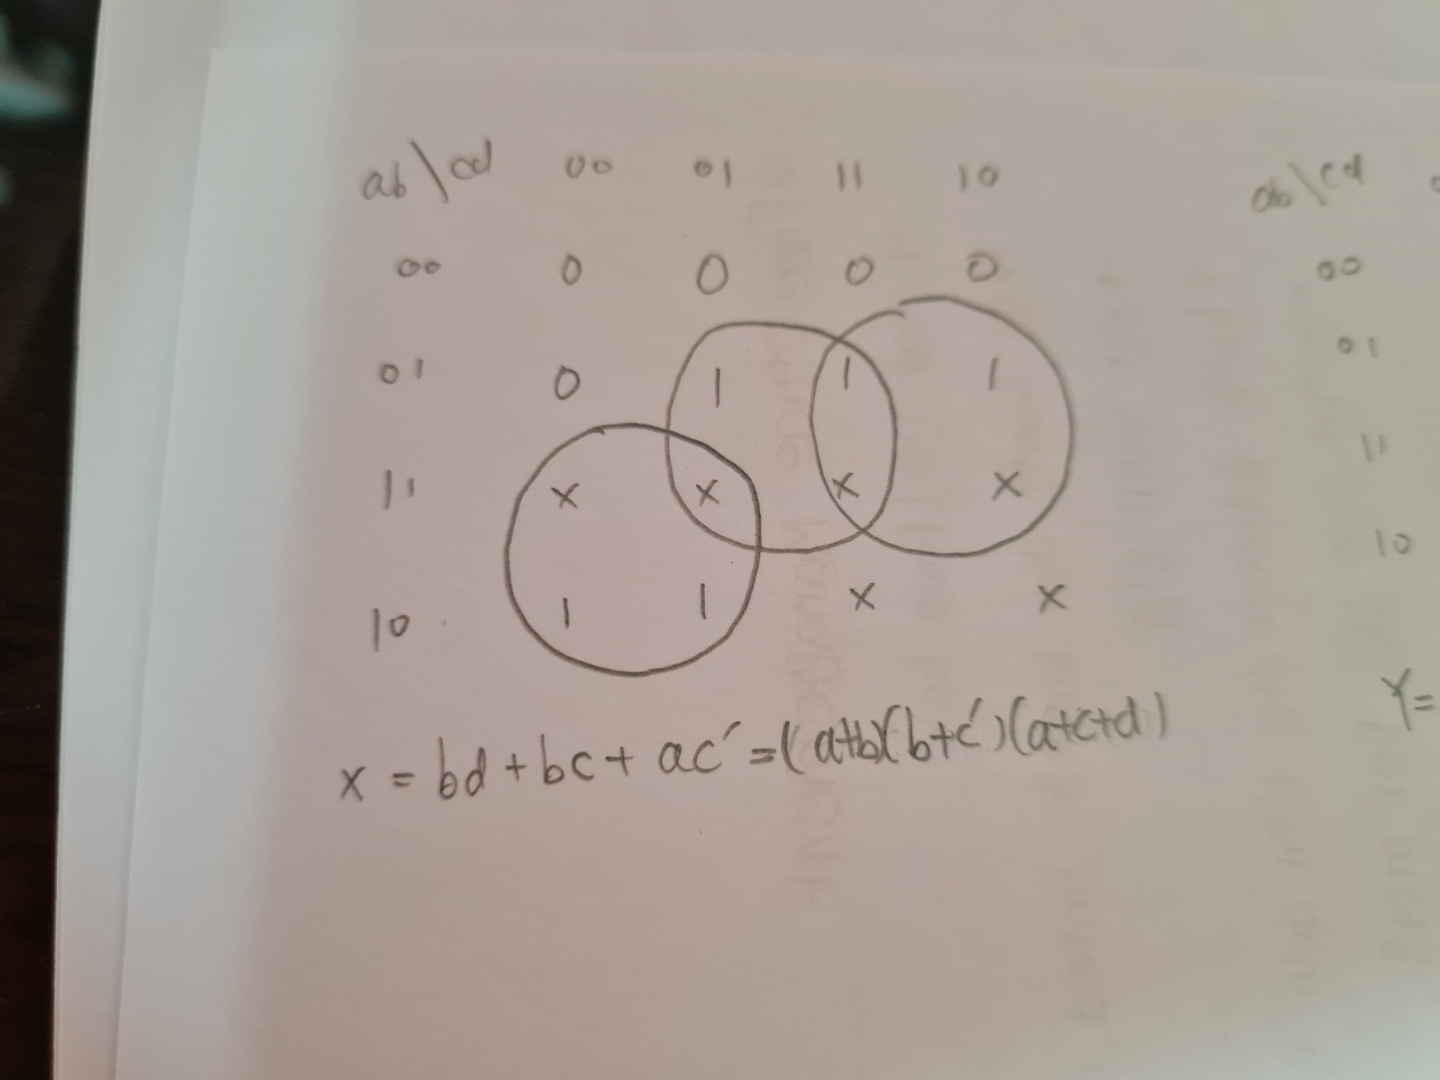 ab\cd 00 01 11 10
00 0 0 0 0
01 0 1 1 1
11 x x x x
10 1 1 x x
x = bd + bc + ac' = (a+b)(b+c')(a+c+d)
ab\cd
00
01
11
10
Y=